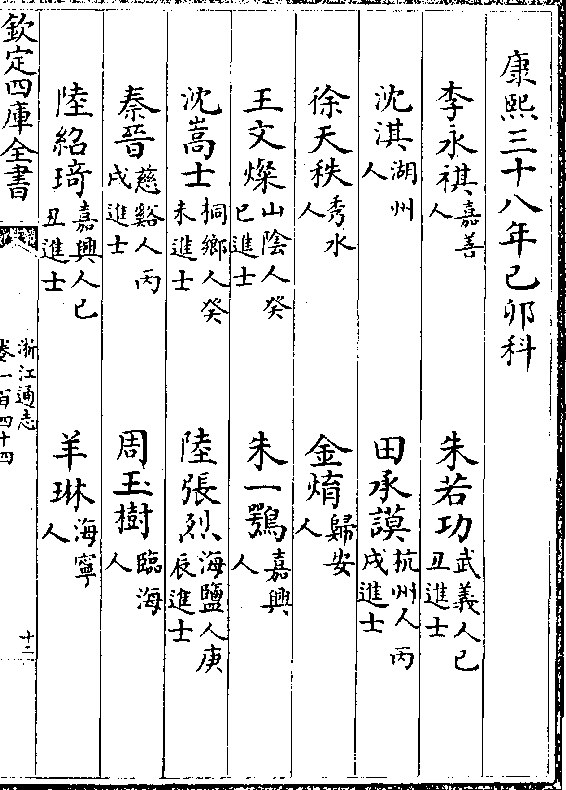 康熙三十八年己卯科
李永祺嘉善人 朱若功武義人己丑進士
沈淇湖州人 田承謨杭州人丙戌進士
徐天秩秀水人 金焴歸安人
王文燦山隂人癸巳進士 朱一鶚嘉興人
沈嵩士桐鄉人癸未進士 陸張烈海鹽人庚辰進士
秦晉慈谿人丙戌進士 周玉樹臨海人
陸紹琦嘉興人己丑進士 羊琳海寧人
欽定四庫全書
浙江通志
卷一百四十四
十二